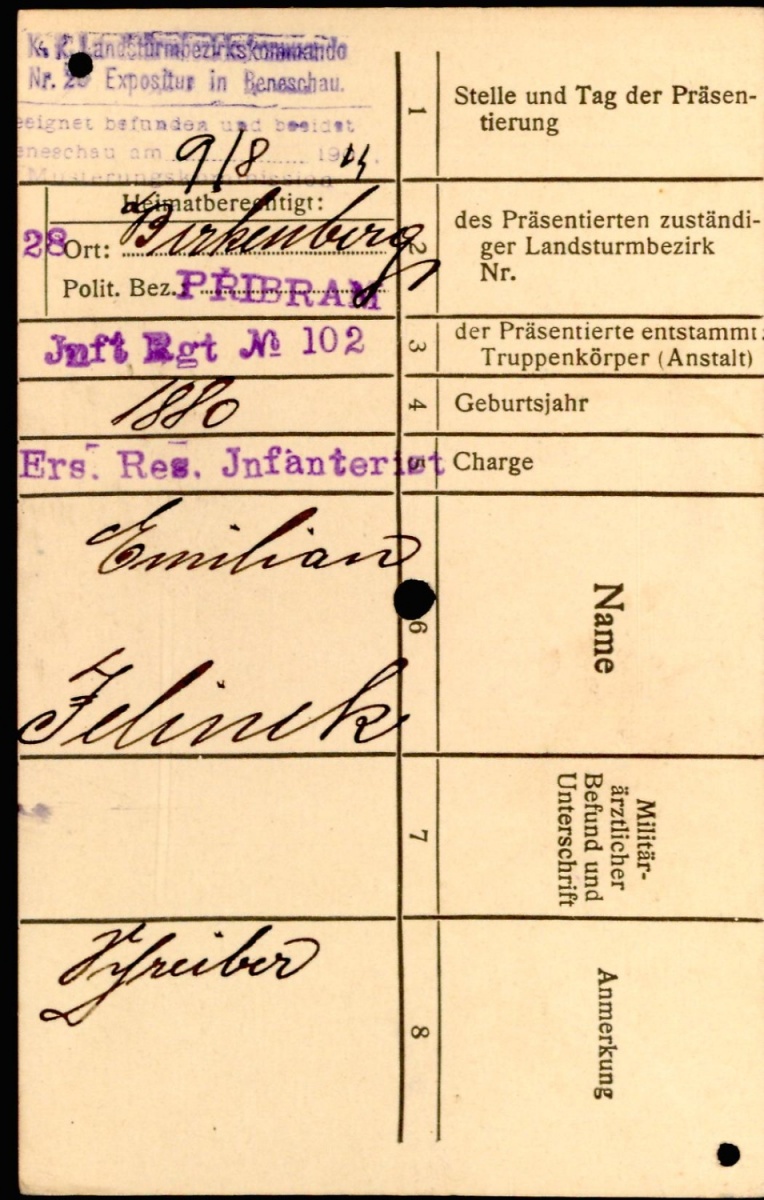 K. K. Landsturmbezirkskommando
Nr. 28 Expositur in Beneschau.
eeignet befunden und beeidet
eneschau am 9/8 191
Musterungskommission
1
Stelle und Tag der Präsen-
tierung
Heimatberechtigt:
28
Ort: Birkenberg
Polit. Bez.: PŘIBRAM
2
des Präsentierten zuständi-
ger Landsturmbezirk
Nr.
Jnft Rgt № 102
3
der Präsentierte entstammt:
Truppenkörper (Anstalt)
1880
4
Geburtsjahr
Ers. Res. Jnfanterist
5
Charge
Emilian
Jelinek
6
Name
7
Militär-
ärztlicher
Befund und
Unterschrift
Schreiber
8
Anmerkung